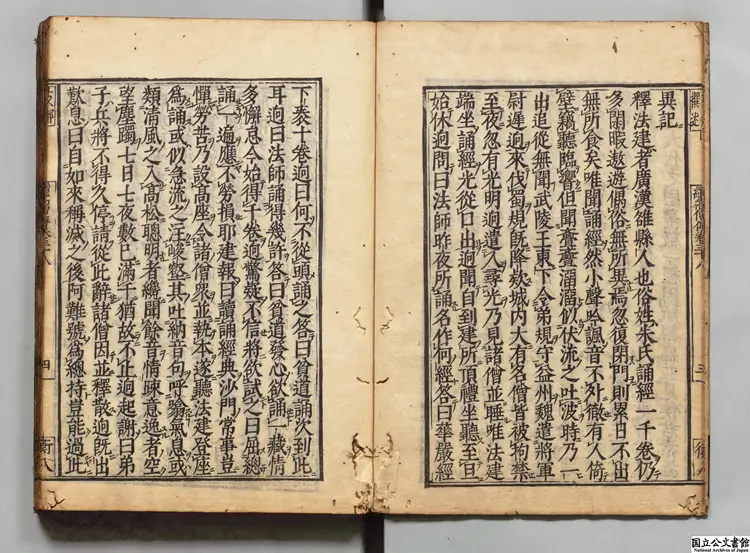 異記
釋法建者廣漢雒縣人也俗姓朱氏誦經一千卷仍
多閑暇遨遊偶俗無所異焉忽復閉門則累日不出
無所食矣唯聞誦經然小聲吟諷音不外徹有人倚
壁竊聽臨響但聞亹亹溜溜似伏流之吐波時乃一
出追從無聞武陵王東下令弟規守益州魏遣將軍
尉遲迥來伐蜀規既降欵城内大有名僧皆被拘禁
至夜忽有光明迥遣人尋光乃見諸僧並睡唯法建
端坐誦經光從口出迥聞自到建所頂禮坐聽至旦
始休迥問曰法師昨夜所誦名作何經答曰華嚴經
三
下袠十卷迥曰何不從頭誦之答曰貧道誦次到此
耳迥曰法師誦得幾許答曰貧道發心欲誦一藏情
多懈怠今始得千卷迥驚疑不信將欲試之曰屈總
誦一遍應不勞損耶建報曰讀誦經典沙門常事豈
憚勞苦乃設高座令諸僧衆並執本逐聽法建登座
為誦或似急流之注峻壑其吐納音句呼噏氣息或
類清風之入高松聰明者纔聞餘音情疎意逸者空
望塵躅七日七夜數已滿千猶故不止迥起謝曰弟
子兵將不得久停請從此辭諸僧因並釋散迥既出
歎息曰自如來稱滅之後阿難號爲總持豈能過此
四
国立公文書館
National Archives of Japan